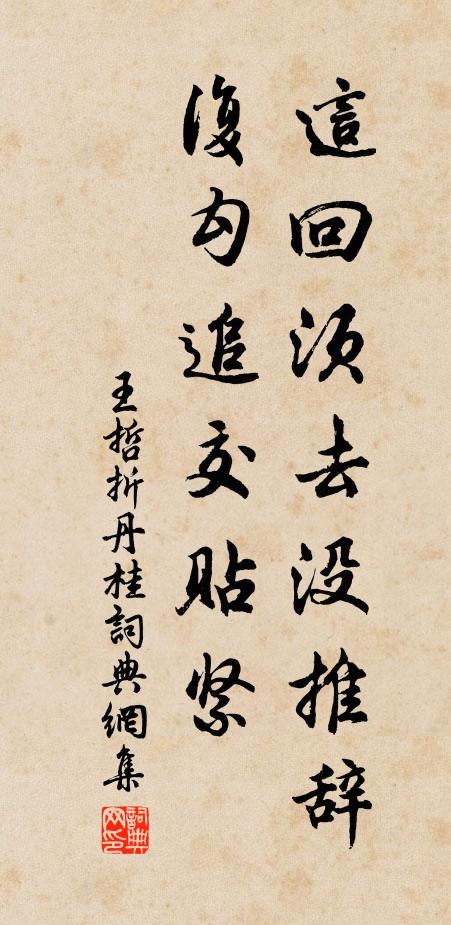 這回須去没推辞
復勾追交貼紧
王哲折丹桂詞典網集
詞典网印